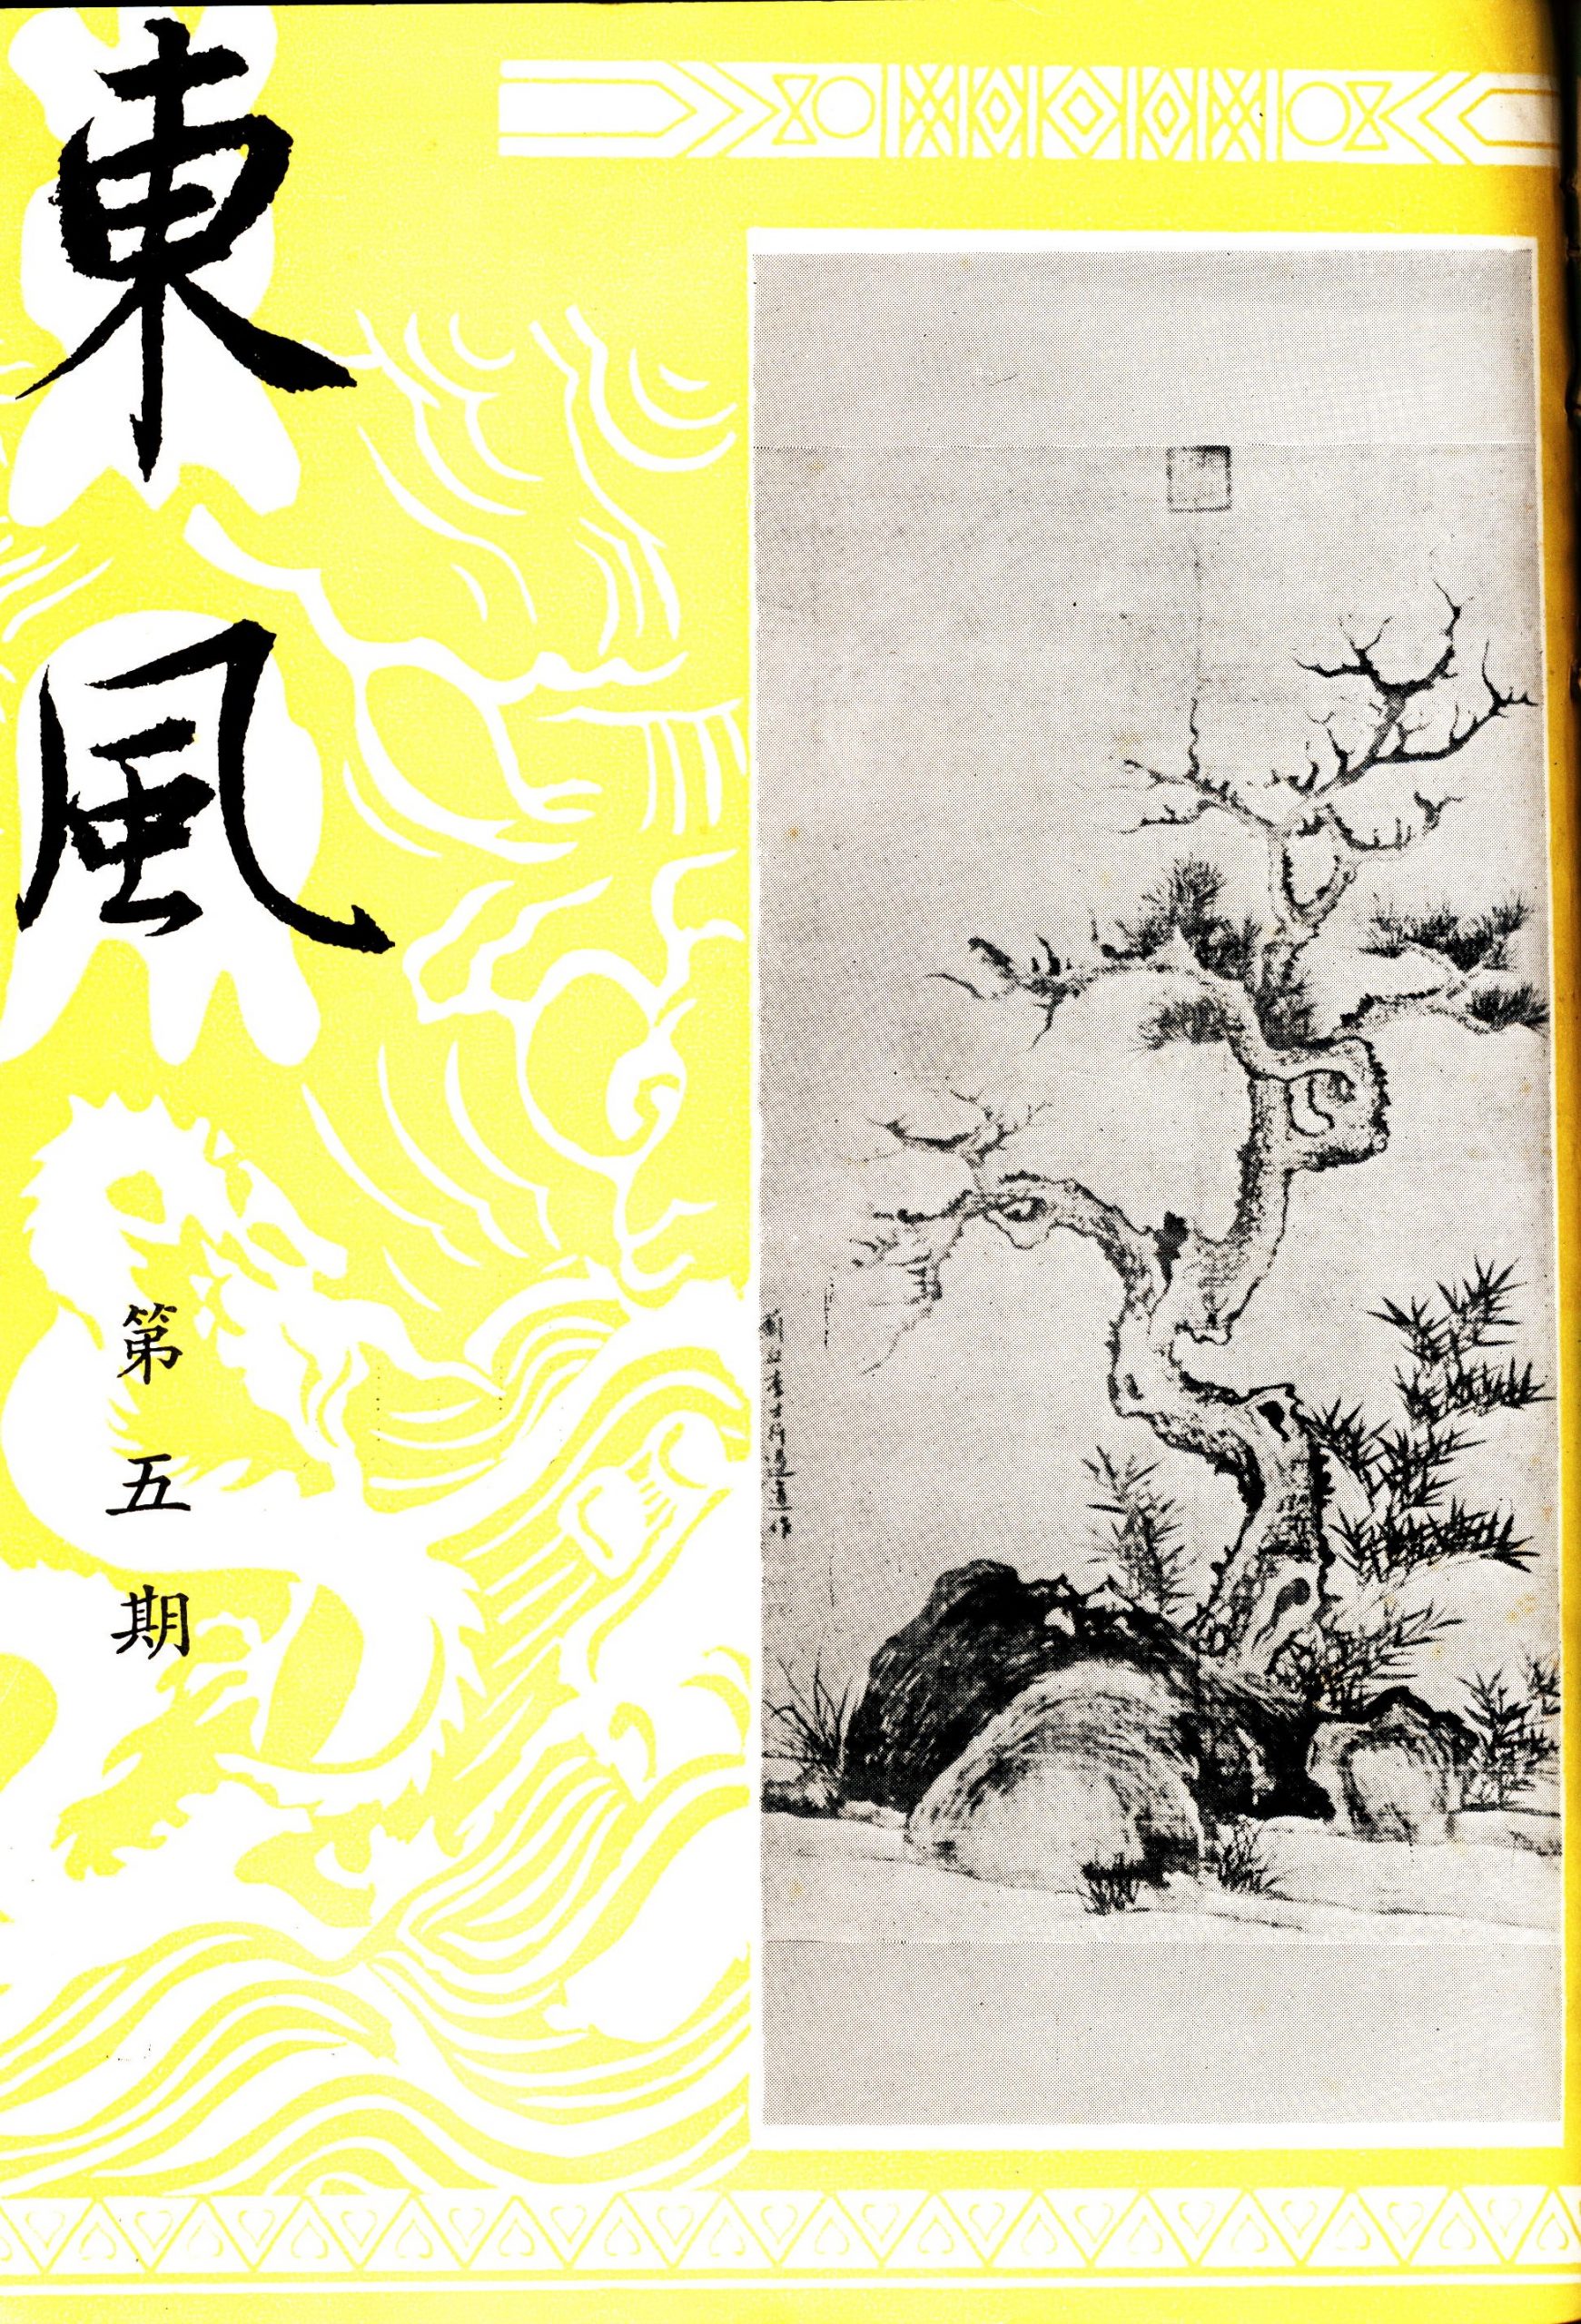 東風
第五期